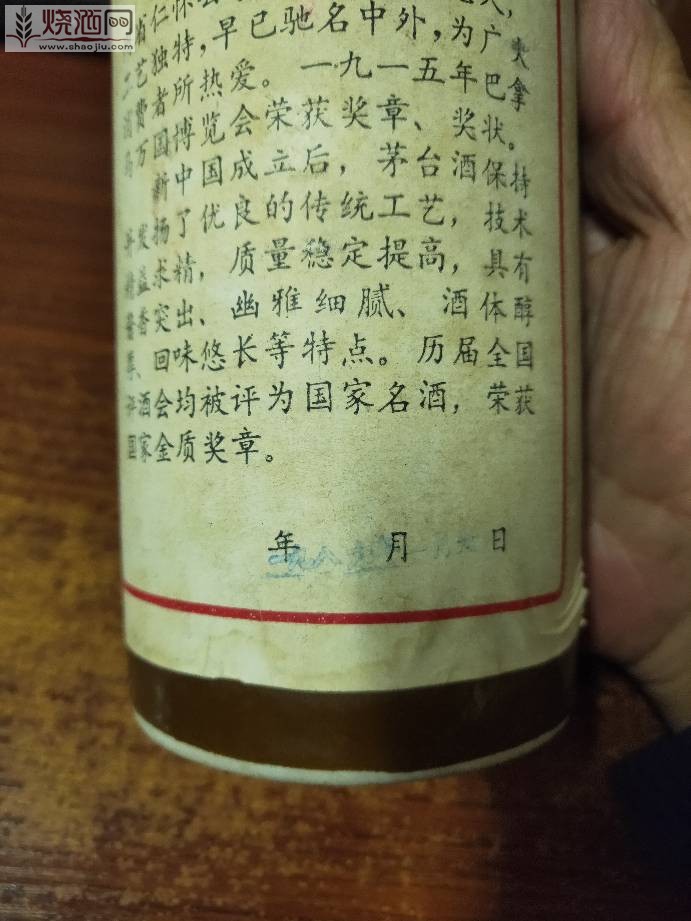 烧酒网
www.shaojiu.com
仁怀
独特，早已驰名中外，为广大
艺 所热爱。一九一五年巴拿
费者博览会荣获奖章、奖状。
万国
新中国成立后，茅台酒保持
发扬了优良的传统工艺，技术
益求精，质量稳定提高，具有
香突出、幽雅细腻、酒体醇
、回味悠长等特点。历届全国
评酒会均被评为国家名酒，荣获
国家金质奖章。
年 月 日